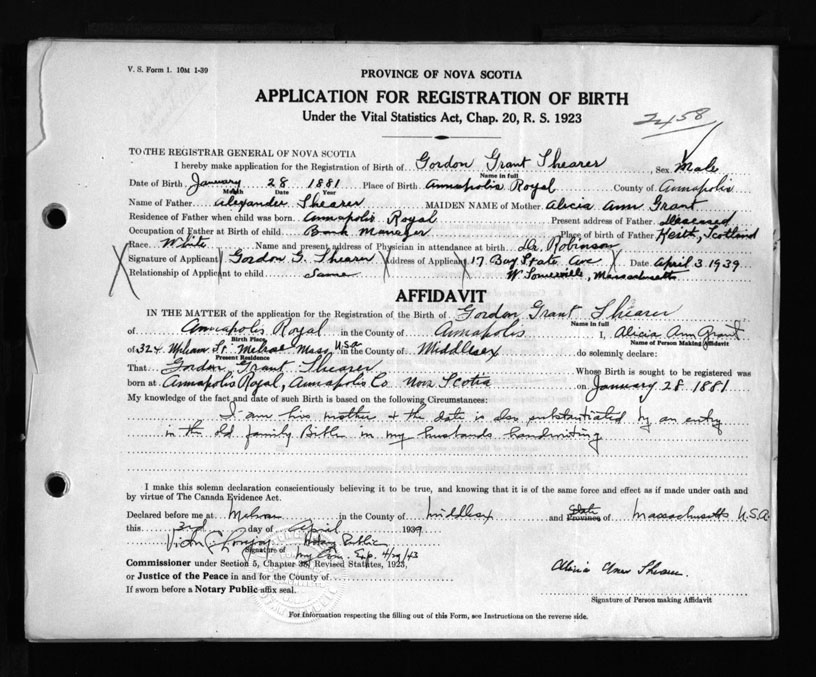 V. S. Form 1. 10M 1-39
PROVINCE OF NOVA SCOTIA
APPLICATION FOR REGISTRATION OF BIRTH
Under the Vital Statistics Act, Chap. 20, R. S. 1923
2458
TO THE REGISTRAR GENERAL OF NOVA SCOTIA
I hereby make application for the Registration of Birth of Gordon Grant Shearer Sex Male
Name in full
Date of Birth January 28 1881 Place of Birth Annapolis Royal County of Annapolis
Month Date Year
Name of Father Alexander Shearer MAIDEN NAME of Mother Alicia Ann Grant
Residence of Father when child was born Annapolis Royal Present address of Father Deceased
Occupation of Father at Birth of child Bank Manager Place of birth of Father Keith, Scotland
Race White Name and present address of Physician in attendance at birth Dr. Robinson
Signature of Applicant Gordon G. Shearer Address of Applicant 17 Bay State Ave Date April 3 1939
Relationship of Applicant to child Same W. Somerville, Massachusetts
AFFIDAVIT
IN THE MATTER of the application for the Registration of the Birth of Gordon Grant Shearer
Name in full
of Annapolis Royal in the County of Annapolis I, Alicia Ann Grant
Birth Place Name of Person Making Affidavit
of 324 St. Melrose Mass U.S.A. in the County of Middlesex do solemnly declare:
Present Residence
That Gordon Grant Shearer Whose Birth is sought to be registered was
born at Annapolis Royal, Annapolis Co Nova Scotia on January 28 1881
My knowledge of the fact and date of such Birth is based on the following Circumstances:
I am his mother & the date is also substantiated by an entry
in the old family Bible in my husbands handwriting
I make this solemn declaration conscientiously believing it to be true, and knowing that it is of the same force and effect as if made under oath and
by virtue of The Canada Evidence Act.
Declared before me at Melrose in the County of Middlesex and State Province of Massachusetts U.S.A.
this 3rd day of April 1939
Victor C. Notary Public
Signature of My Com. Exp. 4/29/43
Commissioner under Section 5, Chapter 38, Revised Statutes, 1923,
or Justice of the Peace in and for the County of
If sworn before a Notary Public affix seal.
Alicia Ann Shearer
Signature of Person making Affidavit
For information respecting the filling out of this Form, see Instructions on the reverse side.